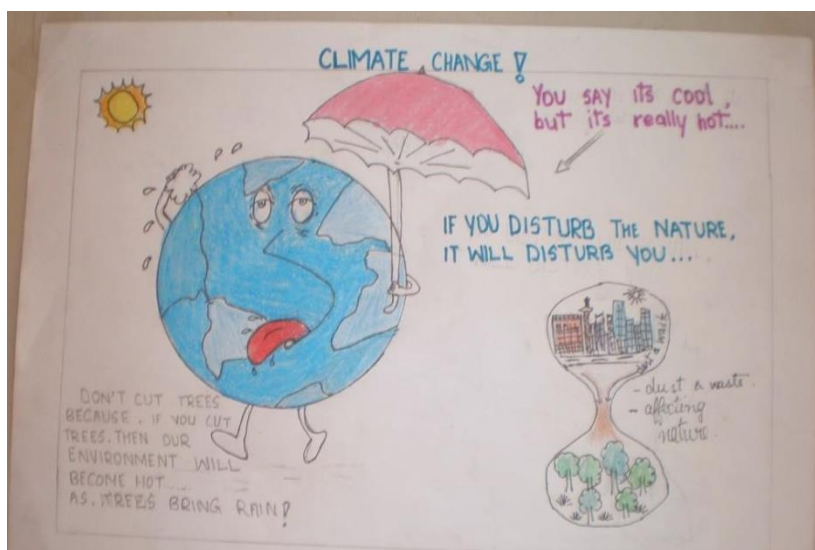 CLIMATE CHANGE!
You SAY its cool,
but it's really hot....
IF YOU DISTURB THE NATURE,
IT WILL DISTURB YOU...
- dust & waste.
- affecting
nature.
DON'T CUT TREES
BECAUSE. IF YOU CUT
TREES. THEN OUR
ENVIRONMENT WILL
BECOME HOT....
AS. TREES BRING RAIN!